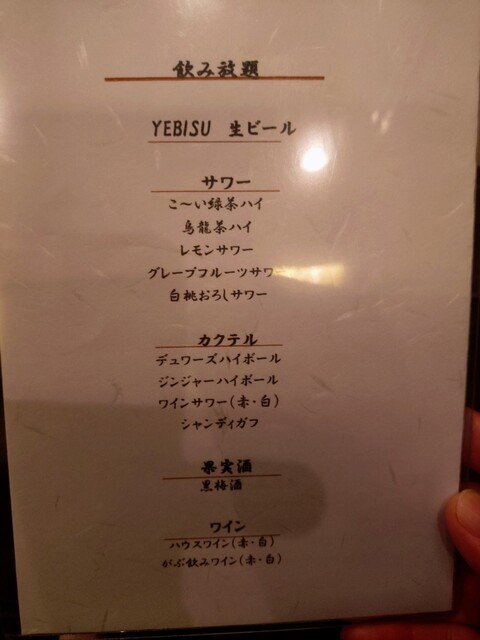 飲み放題
YEBISU 生ビール
サワー
こ～い緑茶ハイ
烏龍茶ハイ
レモンサワー
グレープフルーツサワー
白桃おろしサワー
カクテル
デュワーズハイボール
ジンジャーハイボール
ワインサワー(赤・白)
シャンディガフ
果実酒
黒梅酒
ワイン
ハウスワイン(赤・白)
がぶ飲みワイン(赤・白)